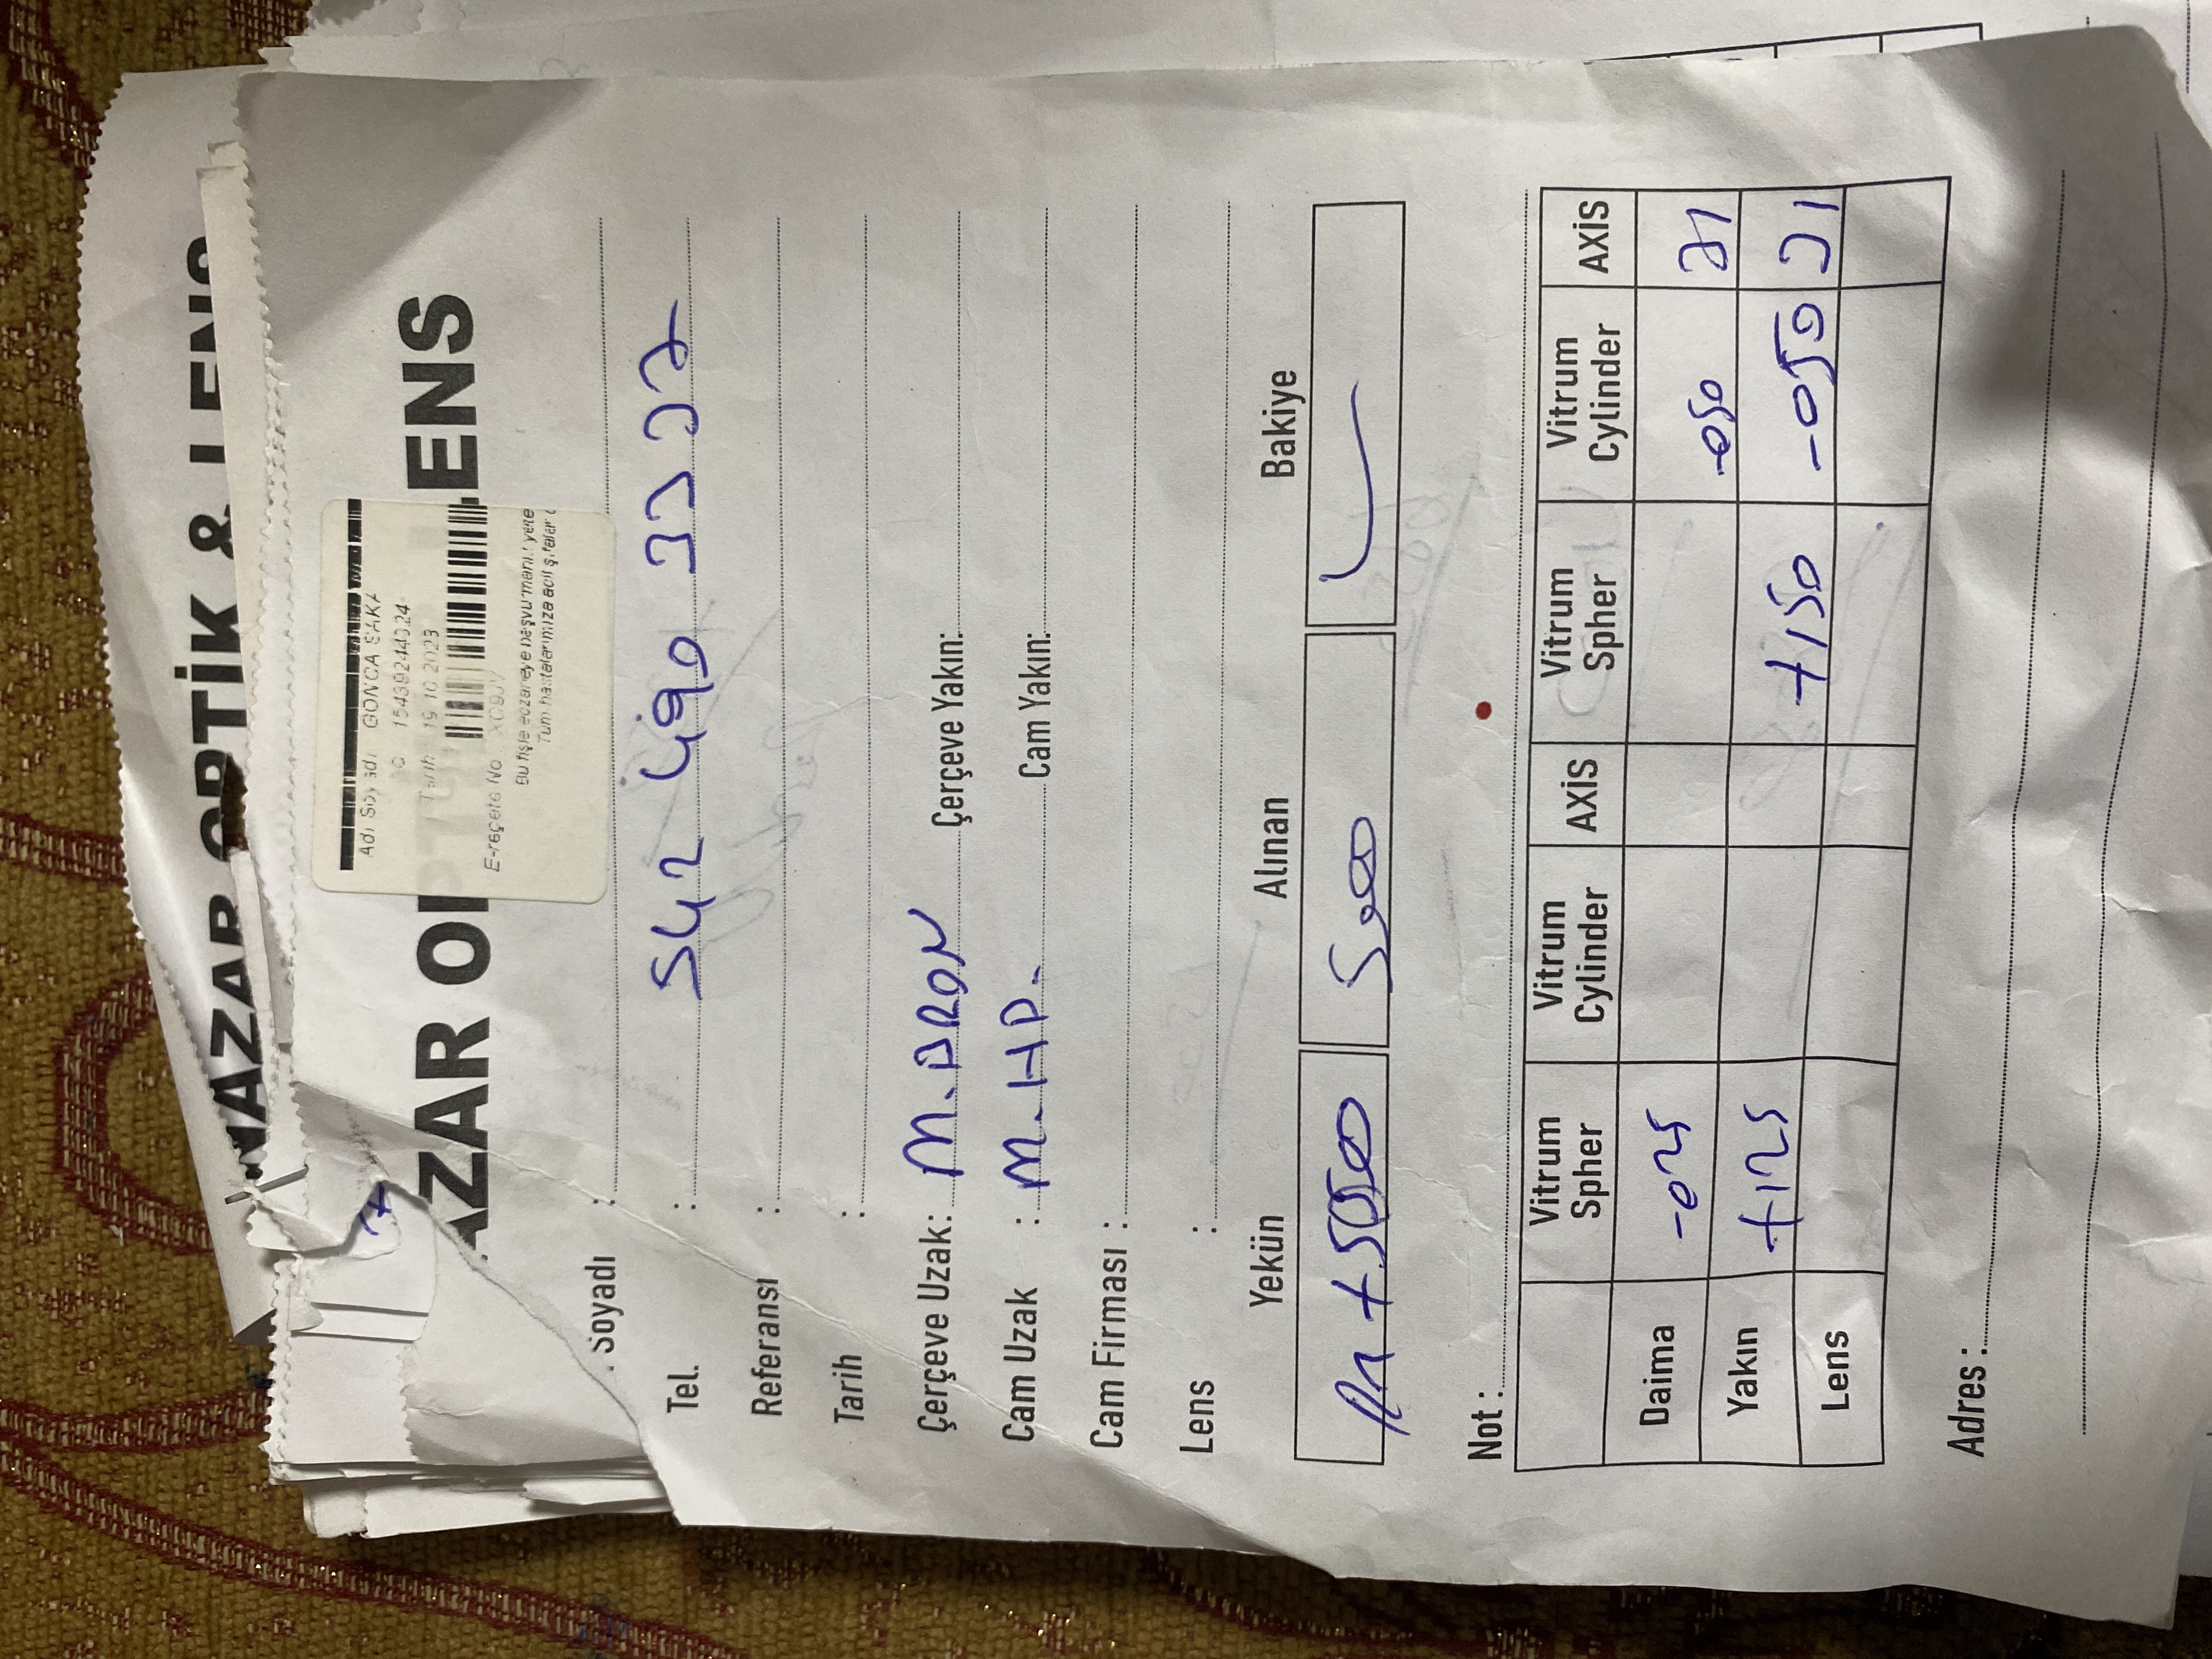 NAZAR OPTİK & LENS
AZAR OPTİK & LENS
Adı Soyadı GONCA SAKA
15439244024
Tarih 19.10.2023
E-reçete No
Bu fişle eczaneye başvurmanız yete
Tüm hastalarımıza acil şifalar d
. Soyadı :
Tel. : 542 490 33 37
Referansı :
Tarih :
Çerçeve Uzak: M. BRON Çerçeve Yakın:
Cam Uzak : M. HP. Cam Yakın:
Cam Firması :
Lens :
Yekün Alınan Bakiye
5000
Not :
Vitrum Spher Vitrum Cylinder AXİS Vitrum Spher Vitrum Cylinder AXİS
Daima -025 -050 31
Yakın +125 +150 -050 31
Lens
Adres :